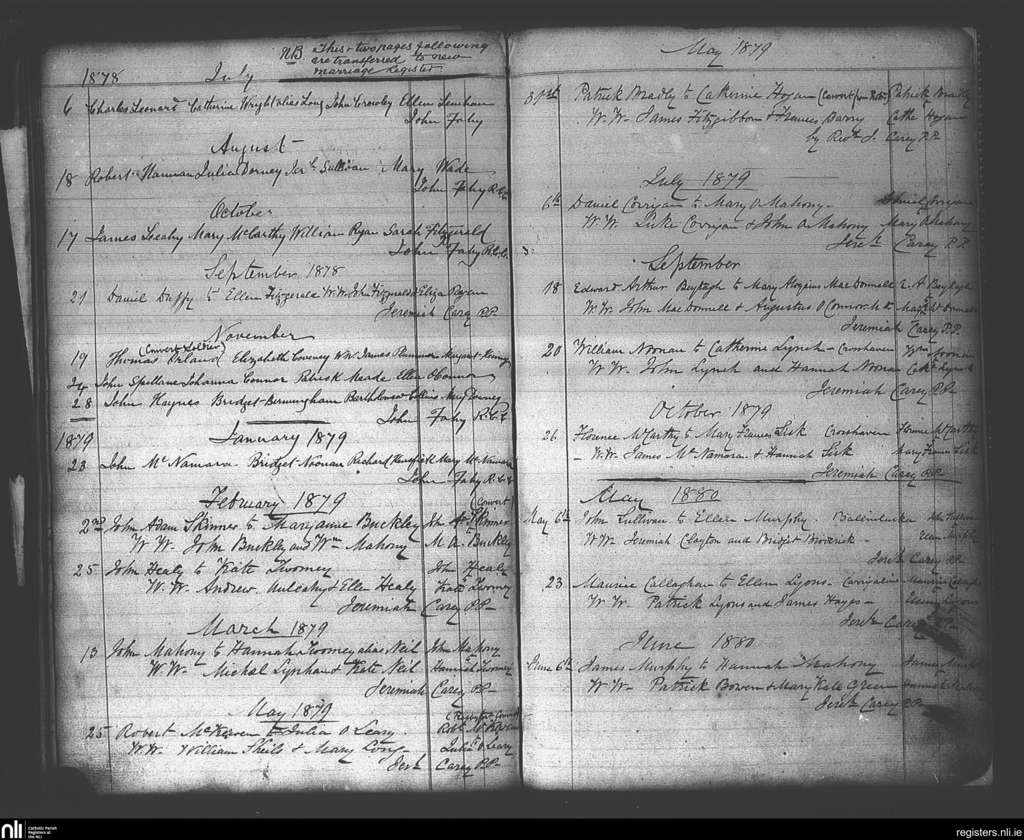 N.B. This & two pages following
are transferred to new
marriage Register
1878 July
6 Charles Leonard Catherine Wright alias Long John Crowley Ellen Lenihan
John Fahy
August
18 Robert Hannan Julia Dorney Jerh Sullivan Mary Wade
John Fahy R.C.C.
October
17 James Leahy Mary McCarthy William Ryan Sarah Fitzgerald
John Fahy R.C.C.
September 1878
21 Daniel Duffy to Ellen Fitzgerald W.W. John Fitzgerald & Eliza Ryan
Jeremiah Carey P.P.
November
(Convert Soldier)
19 Thomas Orland Elizabeth Cooney WW James Plummer Margaret
24 John Spillane Johanna Connor Patrick Meade Ellen O'Connor
28 John Haynes Bridget Bermingham Barthlomew Collins Mary Downey
John Fahy R.C.C.
1879 January 1879
23 John McNamara Bridget Noonan Richard Mary McNamara
John Fahy R.C.C.
February 1879
(Convert
2nd John Adam Skinner to Maryanne Buckley Jn A. Skinner
W.W. John Buckley and Wm Mahony M A. Buckley
25 John Healy to Kate Twomey Jn Healy
W.W. Andrew Mulcahy & Ellen Healy Kate Twomey
Jeremiah Carey P.P.
March 1879
13 John Mahony to Hannah Twomey alias Neil John Mahony
W.W. Michael & Kate Neil Hannah Twomey
Jeremiah Carey P.P.
May 1879
25 Robert McKeown to Julia O Leary Robt McKeown
W.W. William Sheils & Mary Long Julia O Leary
Jerh Carey P.P.
May 1879
31st Patrick Bradly to Catherine Hogan (Convert from Protm) Patrick Bradly
W.W. James Fitzgibbon & Frances Barry Cathe Hogan
by Revd J. Carey P.P.
July 1879
6th Daniel Corrigan to Mary O Mahony Daniel Corrigan
W.W. Luke Corrigan & John O Mahony Mary O Mahony
Jerh Carey P.P.
3
September
18 Edward Arthur Beytagh to Mary Aloysius MacDonnell E. A. Beytagh
W.W. John MacDonnell & Augustus O Connor
Jeremiah Carey P.P.
20 William Noonan to Catherine Lynch - Crosshaven Wm Noonan
W.W. John Lynch and Hannah Noonan Cath Lynch
Jeremiah Carey P.P.
October 1879
26 Florence McCarthy to Mary Frances Lisk Crosshaven Florence McCarthy
W.W. James McNamara & Hannah Lisk Mary Frances Lisk
Jeremiah Carey P.P.
May 1880
May 6th John Sullivan to Ellen Murphy John Sullivan
W.W. Jeremiah Clayton and Bridget Broderick Ellen Murphy
Jerh Carey P.P.
23 Maurice Callaghan to Ellen Lyons - Carrigaline Maurice Callaghan
W.W. Patrick Lyons and James Hayes Ellen Lyons
Jerh Carey P.P.
June 1880
June 6th James Murphy to Hannah Mahony James Murphy
W.W. Patrick Bowen & Mary Kate Green Hannah
Jerh Carey P.P.
nli
Catholic Parish
Registers at
the NLI
registers.nli.ie